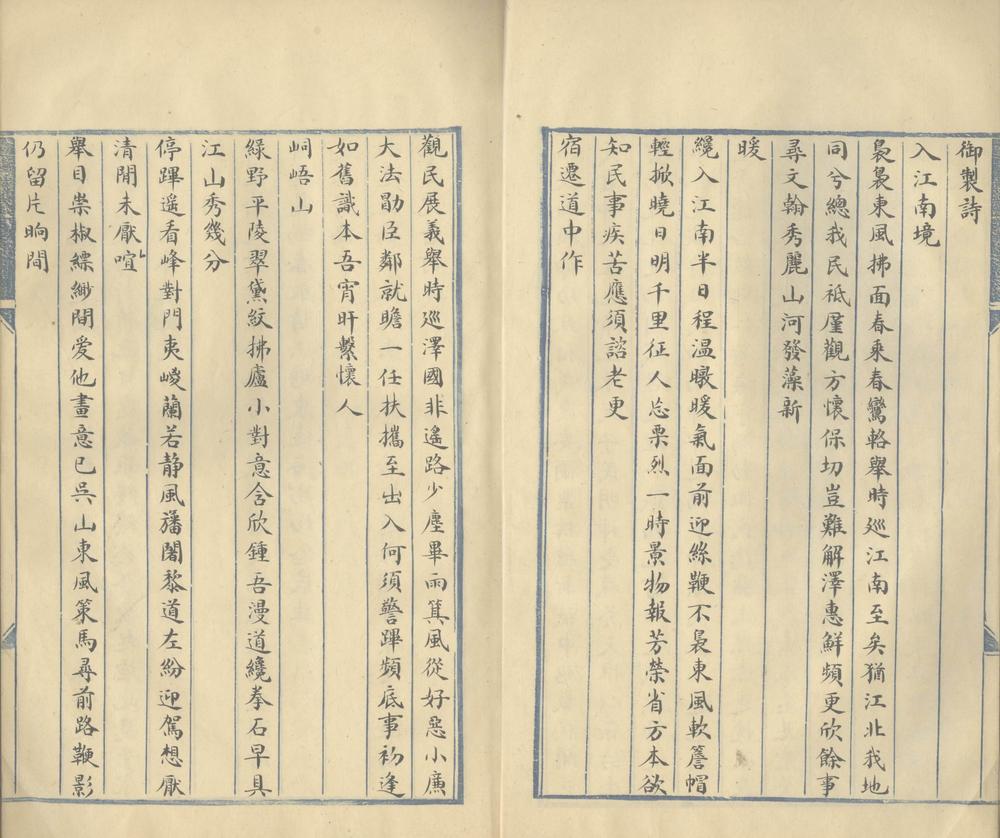 御製詩
入江南境
裊裊東風拂面春乘春鸞輅舉時巡江南至矣猶江北我地
同兮總我民祗厪觀方懷保切豈難解澤惠鮮頻更欣餘事
尋文翰秀麗山河發藻新
暖
纔入江南半日程温暾暖氣面前迎絲鞭不裊東風軟簷帽
輕掀曉日明千里征人忘栗烈一時景物報芳榮省方本欲
知民事疾苦應須諮老更
宿遷道中作
觀民展義舉時巡澤國非遙路少塵畢雨箕風從好惡小廉
大法勖臣鄰就瞻一任扶攜至出入何須警蹕頻底事初逢
如舊識本吾宵旰繫懷人
峒峿山
綠野平陵翠黛紋拂廬小對意含欣鍾吾漫道纔拳石早具
江山秀幾分
停蹕遥看峰對門夷峻蘭若静風旛闍黎道左紛迎駕想厭
清閒未厭喧
舉目崇椒縹緲間愛他畫意已吳山東風策馬尋前路鞭影
仍留片晌間